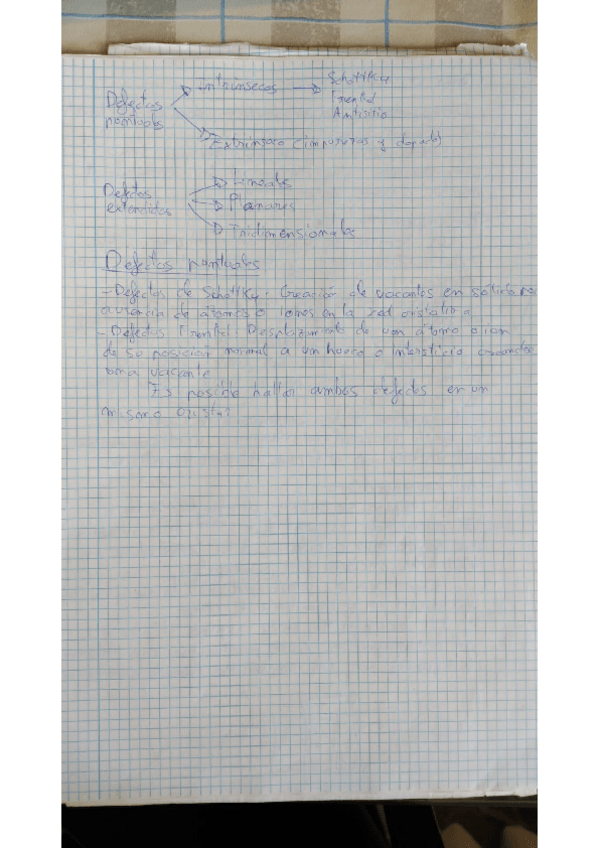 Defectos puntuales
intrínsecos
Schottky
Frenkel
Antisitio
Extrínseco (impurezas y dopado)
Defectos extendidos
Lineales
Planares
Tridimensionales
Defectos puntuales
- Defectos de Schottky: Creación de vacantes en sólido por
ausencia de átomos o iones en la red cristalina
- Defectos Frenkel: Desplazamiento de un átomo o ion
de su posición normal a un hueco o intersticio creando
una vacante
Es posible hallar ambos defectos en un
mismo cristal